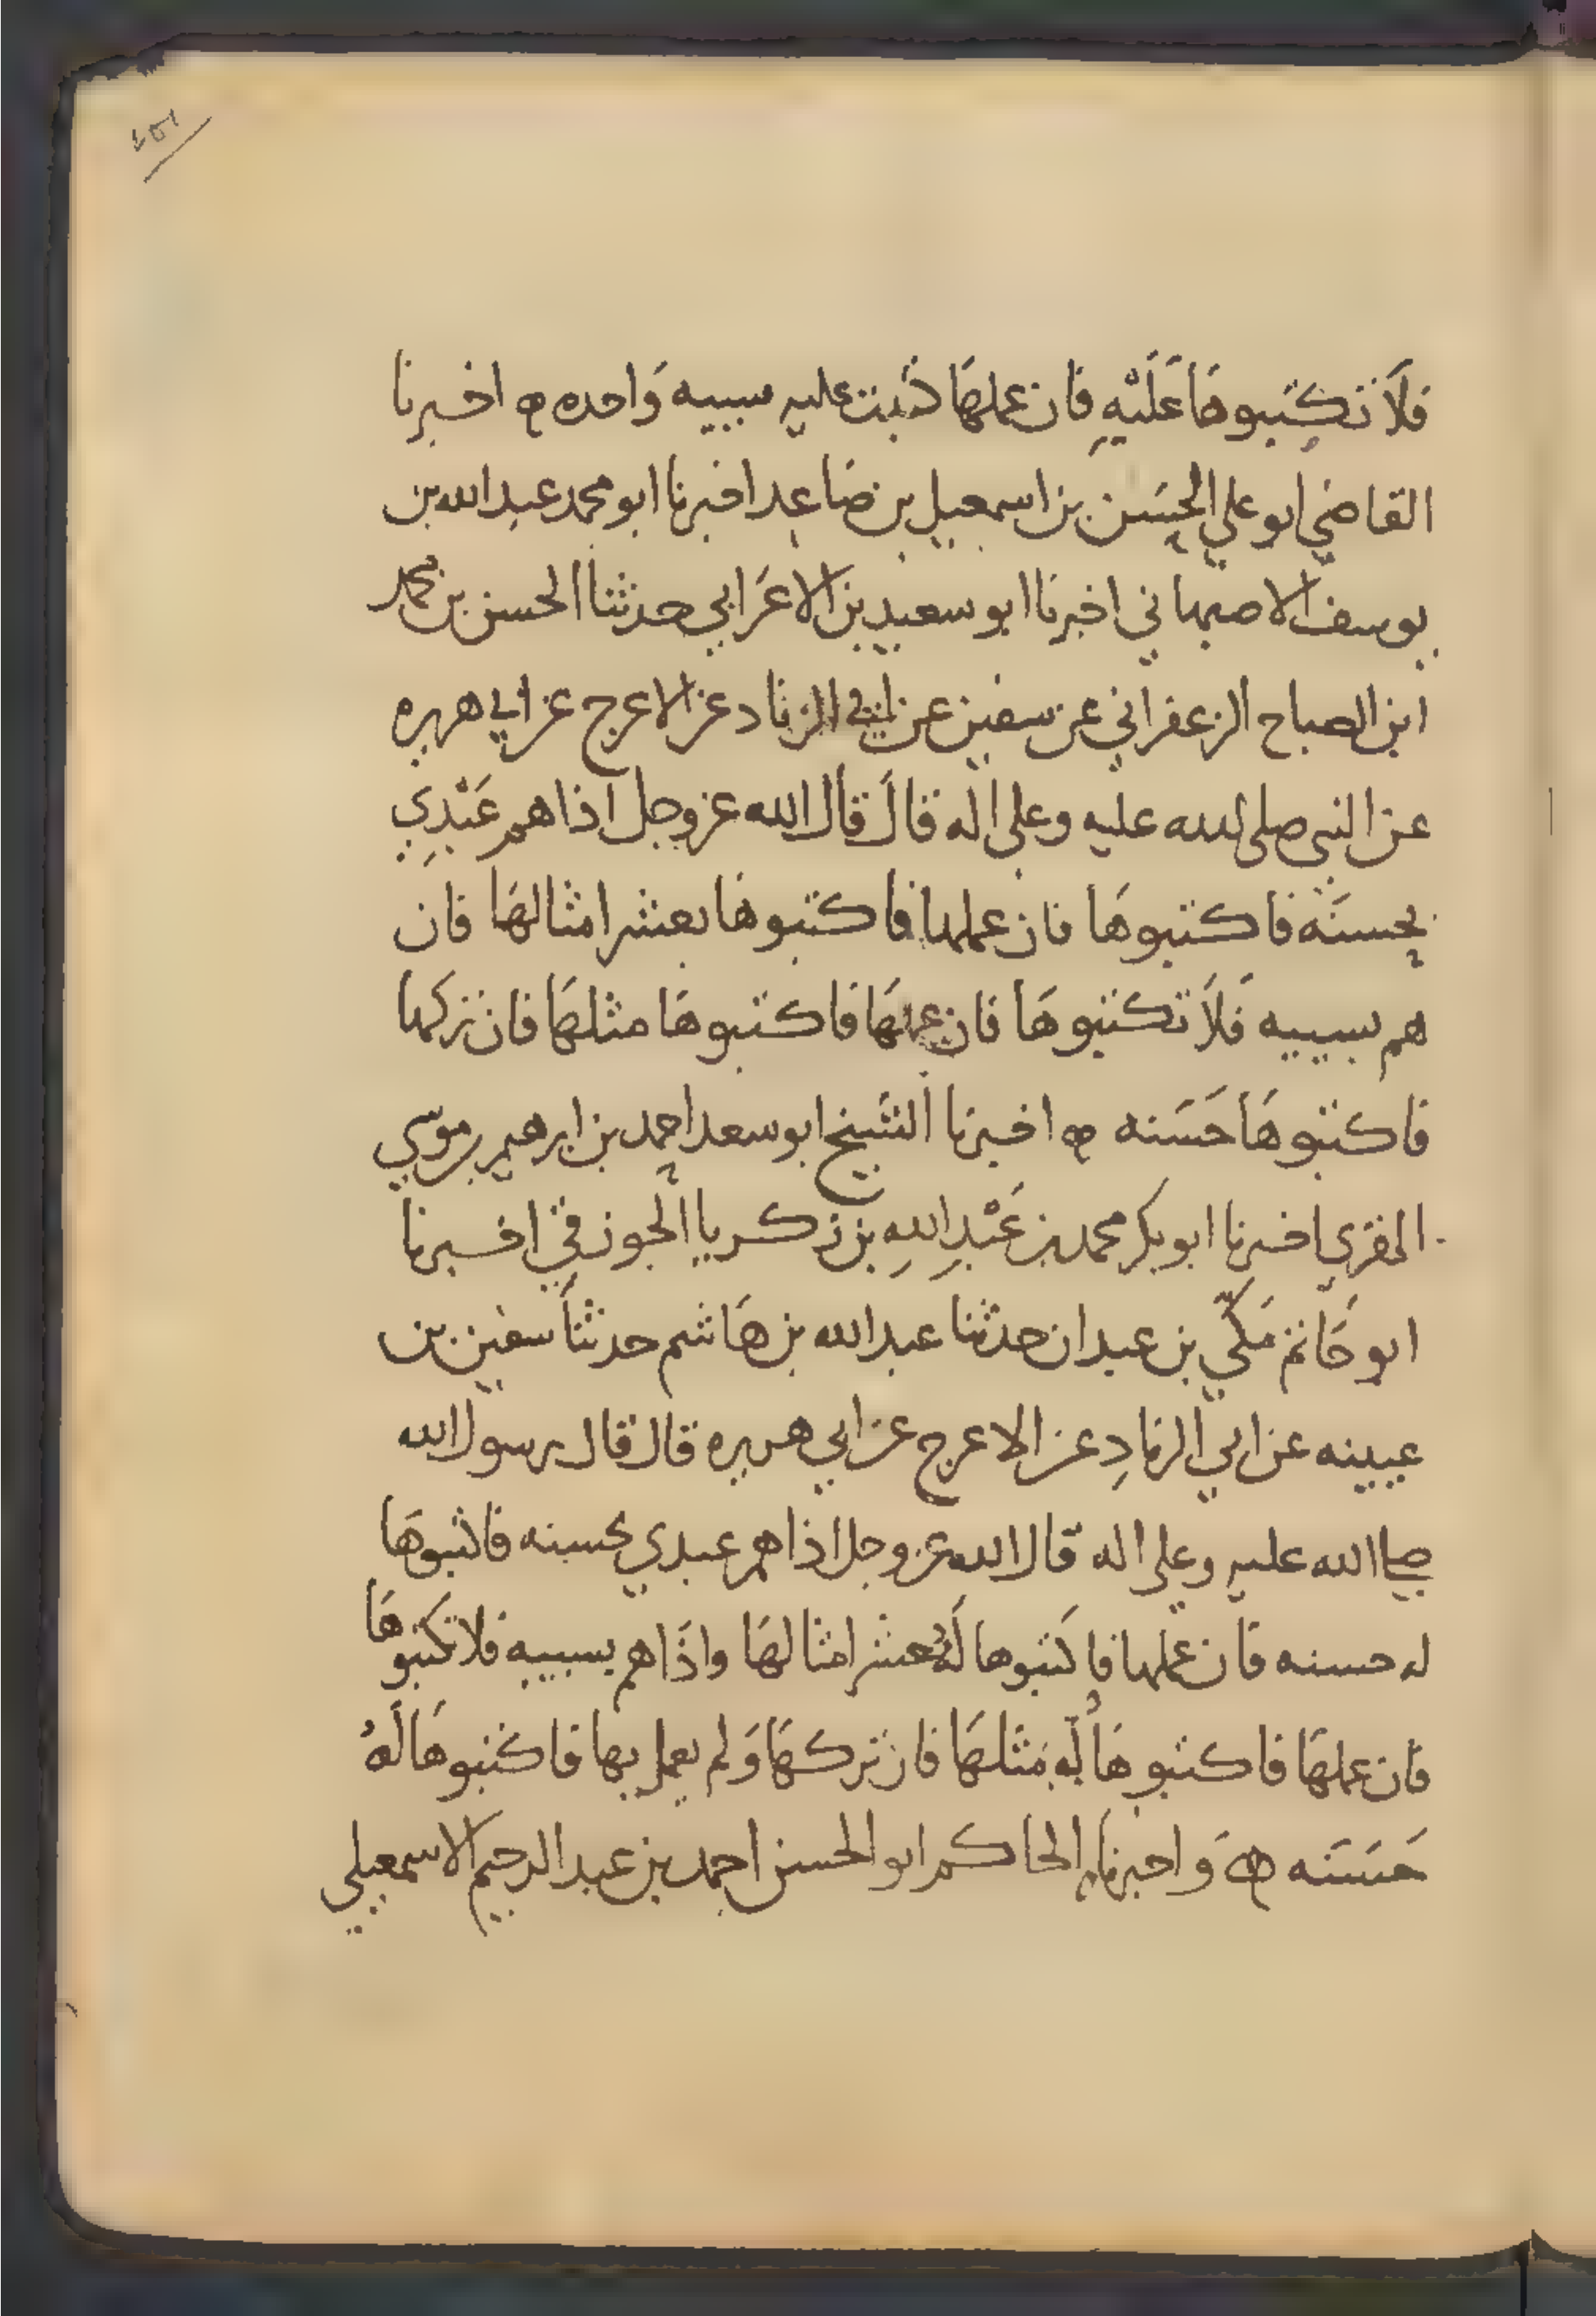 فلَا تكتبوهَا عَلَيْهِ فان عملهَا كُتبت عليه سييه وَاحده ه اخبرنا
القاضي ابو علي الحسَن بن اسمعيل بن صَاعد اخبرنا ابو محمد عبد الله بن
يوسف الاصبهاني اخبرنا ابو سعيد بن الاعرَابي حدثنا الحسن بن محمد
ابن الصباح الزعفراني عن سفين عن ابي الزناد عن الاعرج عن ابي هريره
عن النبي صلى الله عليه وعلى اله قال قال الله عز وجل اذا هم عَبْدِي
بحسنَه فاكتبوهَا فان عملها فاكتبوها بعشر امثالهَا فان
هم بسييه فَلَا تكتبوهَا فان عملهَا فاكتبوهَا مثلهَا فان تركها
فاكتبوهَا حَسَنه ه اخبرنا الشيخ ابو سعد احمد بن ابرهيم بن موسي
المقري اخبرنا ابو بكر محمد بن عَبْدِ اللهِ بن زكريا الجوزقي اخبرنا
ابو حَاتم مَكّي بن عبدان حدثنا عبد الله بن هَاشم حدثنا سفين بن
عيينه عن ابي الزنادِ عن الاعرج عن ابي هريره قال قال رسول الله
صلى الله عليه وعلى اله قال الله عز وجل اذا هم عبدي بحسنه فاكتبوهَا
له حسنه فان عملها فاكتبوها لَهُ بعشر امثالهَا واذَا هم بسييه فلا تكتبوهَا
فان عملهَا فاكتبوهَا لَه مثلهَا فان تركهَا وَلم يعمل بها فاكتبوهَا لَهُ
حَسَنَه ه وَاخبرنا الحاكم ابو الحسن احمد بن عبد الرحيم الاسمعيلي